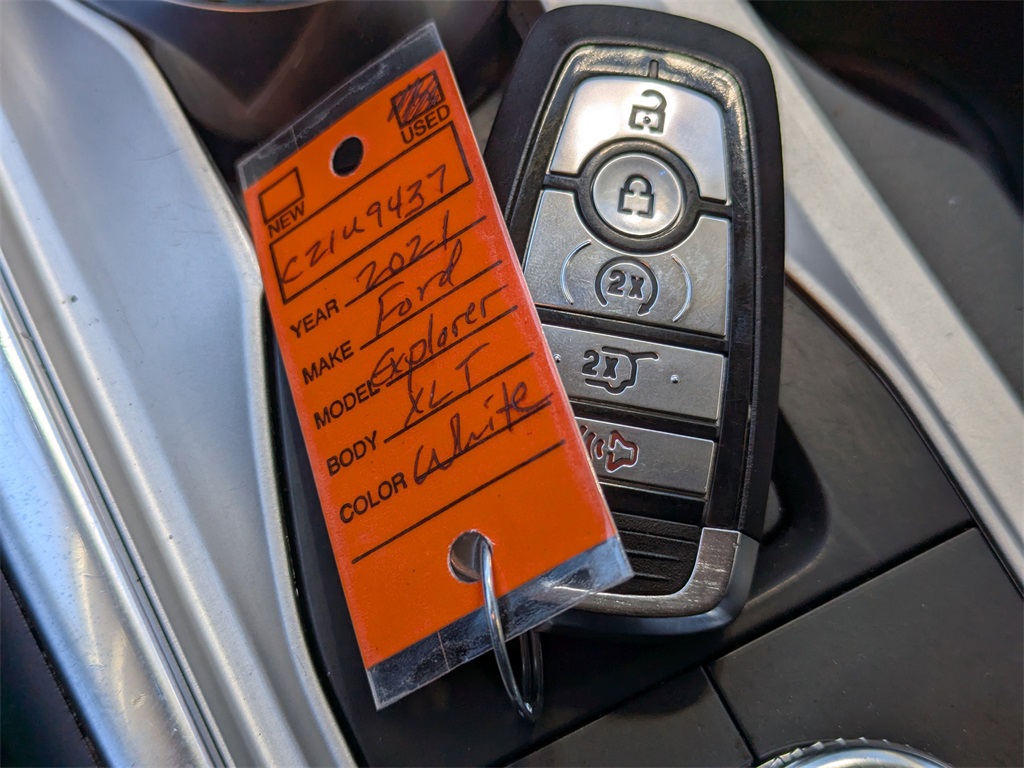 USED
NEW
CZ1U9437
YEAR 2021
MAKE Ford
MODEL Explorer
BODY XLT
COLOR White
2X
2X